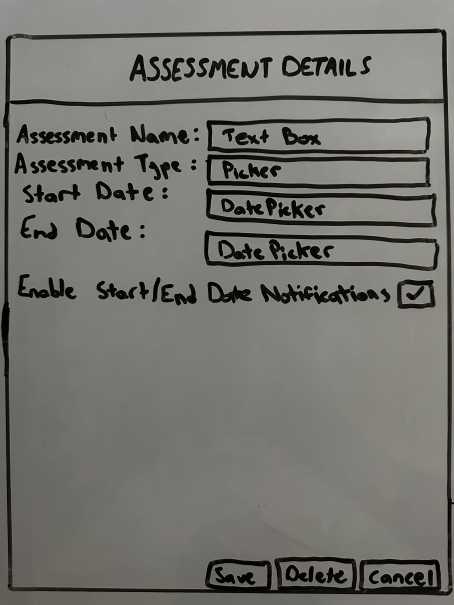 ASSESSMENT DETAILS
Assessment Name: Text Box
Assessment Type: Picker
Start Date: DatePicker
End Date: DatePicker
Enable Start/End Date Notifications
Save Delete Cancel